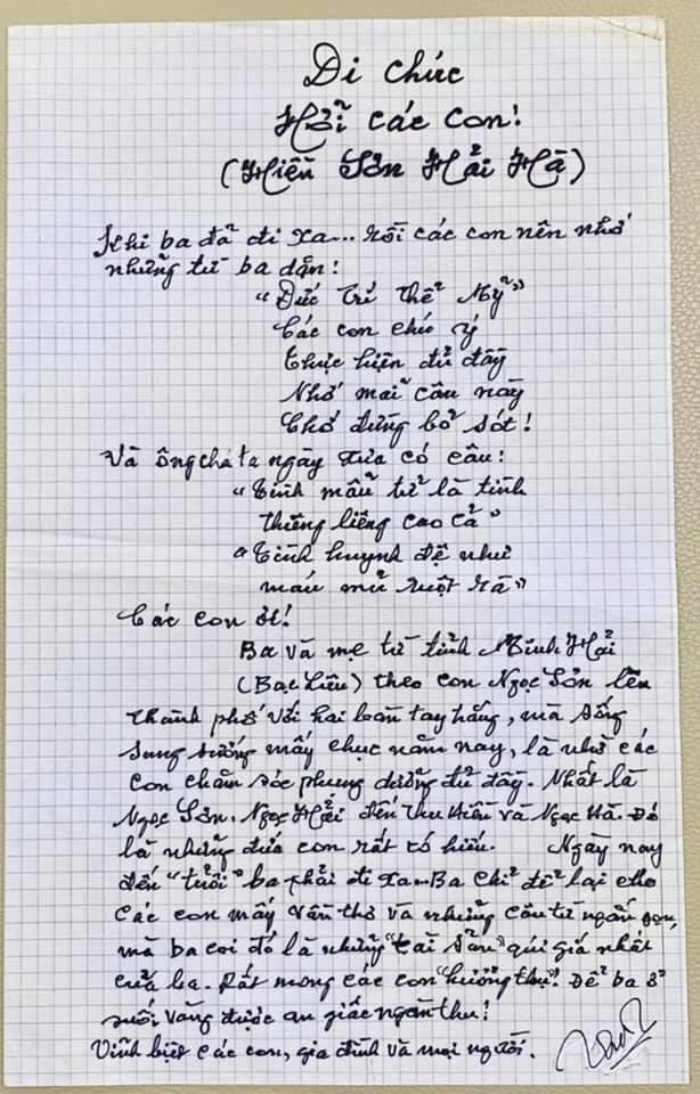 Di chúc
Hỡi các con!
(Hiền Sơn Hải Hà)
Khi ba đã đi xa... rồi các con nên nhớ
những từ ba dặn:
"Đức trí thể mỹ"
Các con chú ý
Thực hiện đủ đầy
Nhớ mãi câu này
Chớ đừng bỏ sót!
Và ông cha ta ngày xưa có câu:
"Tình mẫu tử là tình
thiêng liêng cao cả"
"Tình huynh đệ như
máu mủ ruột rà"
Các con ơi!
Ba và mẹ từ tỉnh Minh Hải
(Bạc Liêu) theo con Ngọc Sơn lên
thành phố với hai bàn tay trắng, mà sống
sung sướng mấy chục năm nay, là nhờ các
con chăm sóc phụng dưỡng đủ đầy. Nhất là
Ngọc Sơn, Ngọc Hải đến Thu Hiền và Ngọc Hà. Đó
là những đứa con rất có hiếu. Ngày nay
đến "tuổi" ba phải đi xa... Ba chỉ để lại cho
các con mấy vần thơ và những câu từ ngắn gọn,
mà ba coi đó là những "tài sản" quí giá nhất
của ba. Rất mong các con "hưởng thụ". Để ba ở
suối vàng được an giấc ngàn thu!
Vĩnh biệt các con, gia đình và mọi người.